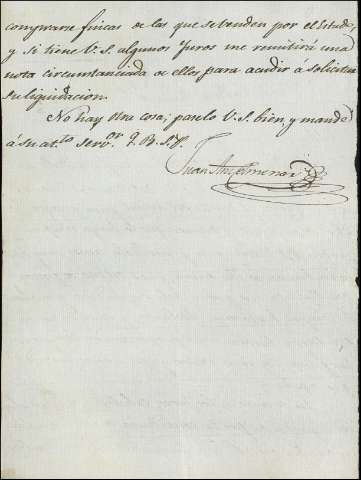 comprarse fincas de las que se benden por el Estado,
y si tiene V.S. algunos Juros me remitirá una
nota circunstanciada de ellos para acudir á solicitar
su liquidacion.
No hay otra cosa; paselo V.S. bien, y mande
á su at.to serv.or Q.B.S.M.
Juan Ant.